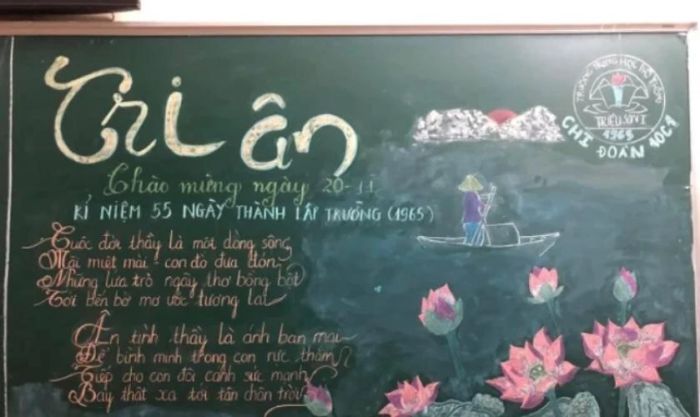 Tri ân
Chào mừng ngày 20-11
KỈ NIỆM 55 NGÀY THÀNH LẬP TRƯỜNG (1965)
Cuộc đời thầy là một dòng sông
Mải miệt mài - con đò đưa đón
Những lứa trò ngây thơ bồng bột
Tới bến bờ mơ ước tương lai
Ân tình thầy là ánh ban mai
Để bình minh trong con rực thắm
Tiếp cho con đôi cánh sức mạnh
Bay thật xa tới tận chân trời
TRƯỜNG TRUNG HỌC PHỔ THÔNG
TRIỆU SƠN 1
1965
CHI ĐOÀN 10C4